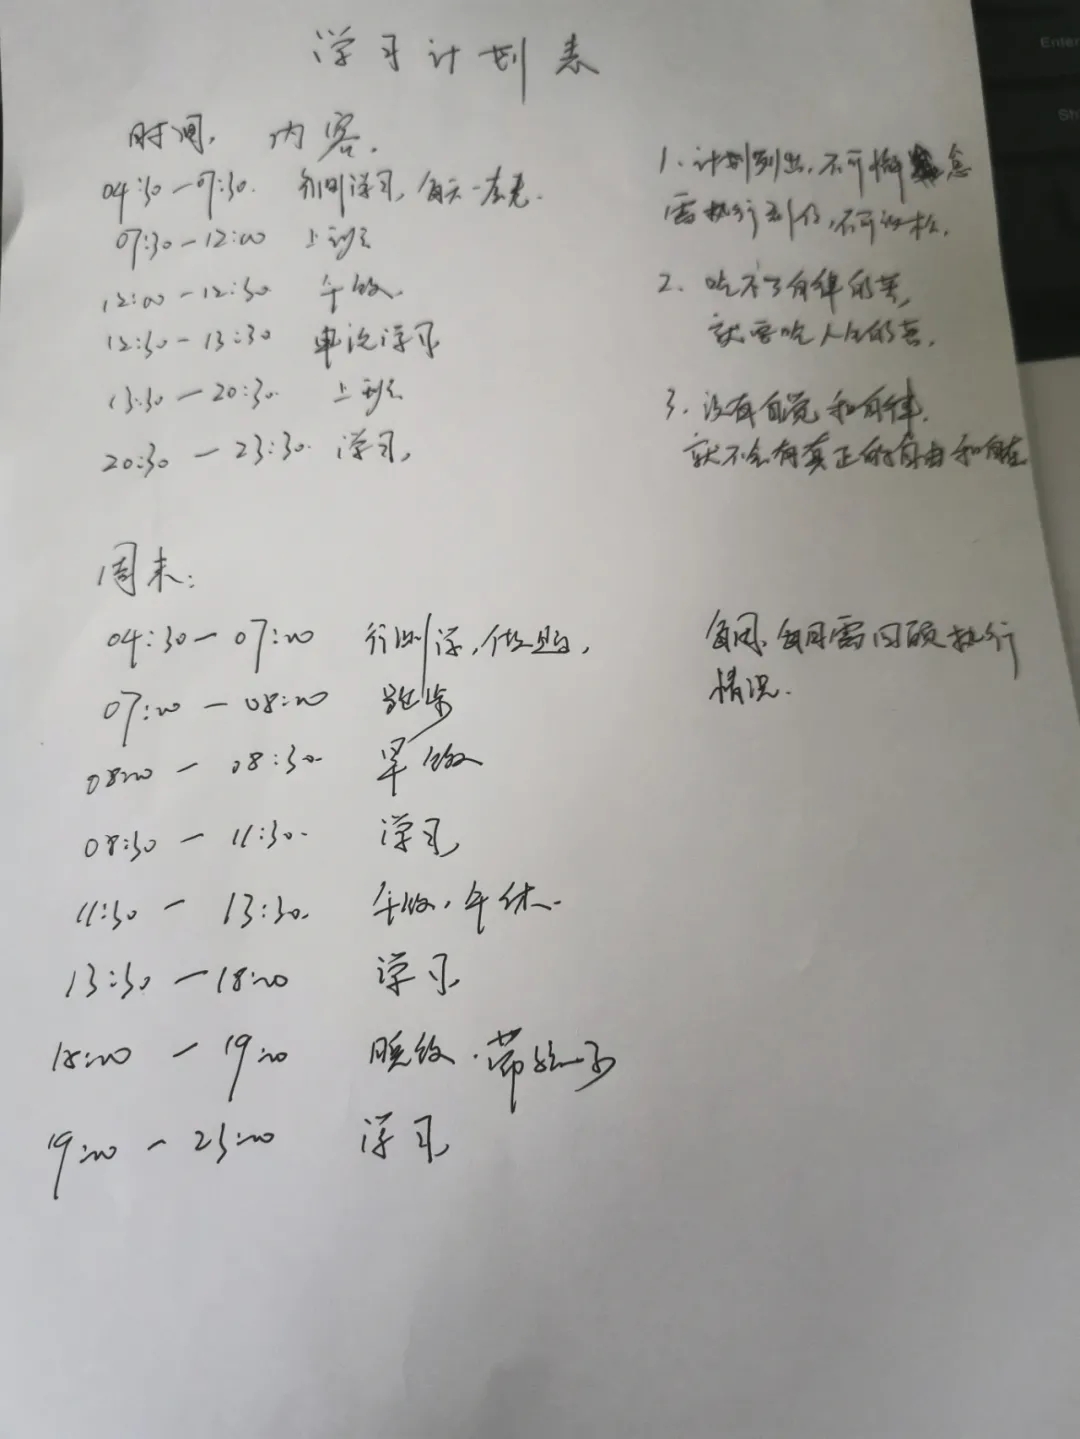 学习计划表
时间, 内容.
04:30-07:30. 行测学习, 每天一套卷.
07:30-12:00 上班
12:00-12:30 午饭.
12:30-13:30 申论学习
13:30-20:30. 上班
20:30-23:30. 学习,
1. 计划列出, 不可懈怠
需执行到位, 不可放松.
2. 吃不了自律的苦,
就要吃人生的苦.
3. 没有自觉和自律.
就不会有真正的自由和自在
周末:
04:30-07:00 行测学,
07:00-08:00 跑步
08:00-08:30. 早饭
08:30-11:30. 学习
11:30-13:30. 午饭, 午休.
13:30-18:00 学习
18:00-19:00 晚饭. 带孩子
19:00-23:00 学习
每周、每月需回顾执行
情况.